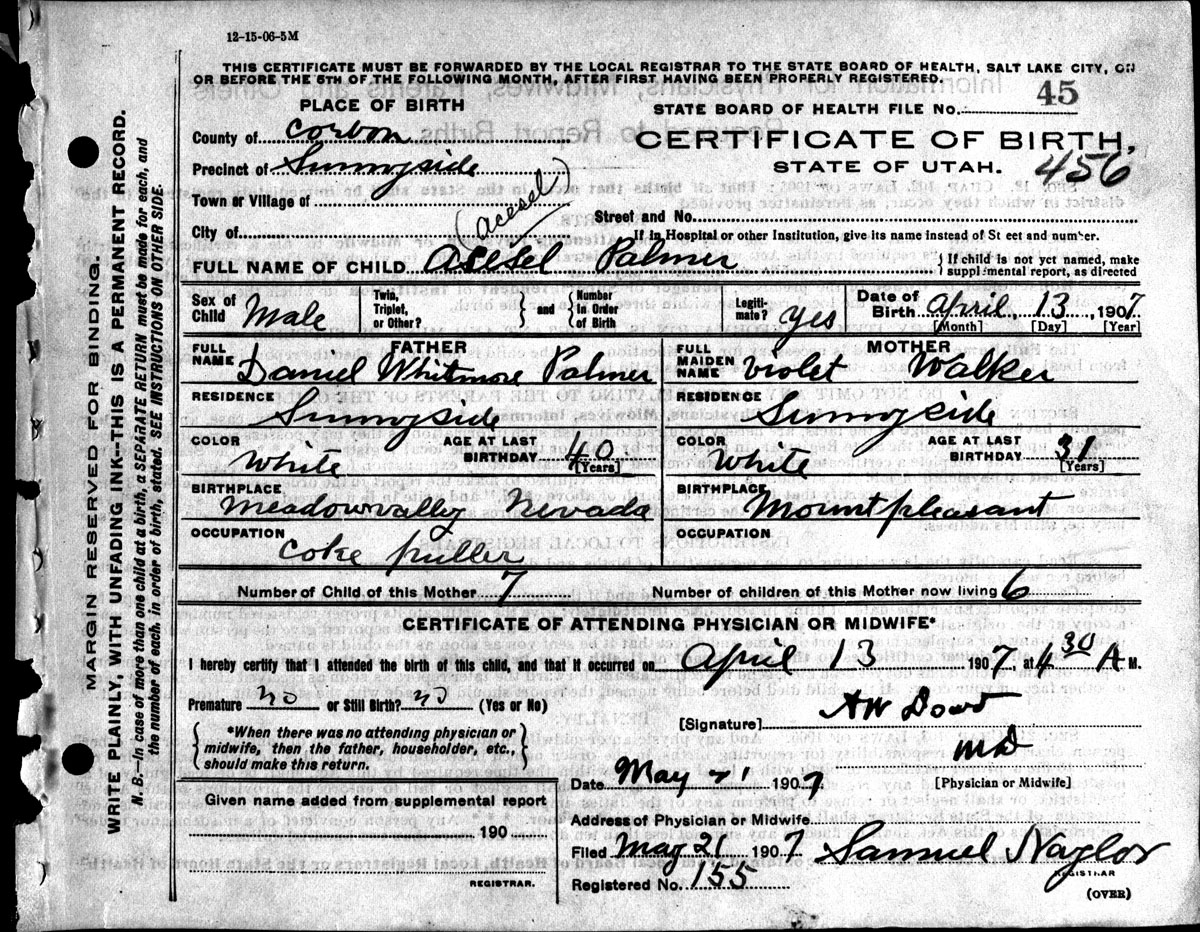 12-15-06-5M
THIS CERTIFICATE MUST BE FORWARDED BY THE LOCAL REGISTRAR TO THE STATE BOARD OF HEALTH, SALT LAKE CITY, ON
OR BEFORE THE 5TH OF THE FOLLOWING MONTH, AFTER FIRST HAVING BEEN PROPERLY REGISTERED.
PLACE OF BIRTH
STATE BOARD OF HEALTH FILE No. 45
County of Corbon
CERTIFICATE OF BIRTH,
STATE OF UTAH.
456
Precinct of Sunnyside
Town or Village of
(acesel)
Street and No.
City of
If in Hospital or other Institution, give its name instead of St eet and number.
FULL NAME OF CHILD Acesel Palmer
{ If child is not yet named, make
supplemental report, as directed
Sex of Child Male
Twin, Triplet, or Other? } and { Number In Order of Birth
Legiti-mate? yes
Date of Birth April, 13, 1907
[Month] [Day] [Year]
FATHER
FULL NAME Daniel Whitmore Palmer
MOTHER
FULL MAIDEN NAME Violet Walker
RESIDENCE Sunnyside
RESIDENCE Sunnyside
COLOR White AGE AT LAST BIRTHDAY 40 [Years]
COLOR White AGE AT LAST BIRTHDAY 31 [Years]
BIRTHPLACE Meadowvalley Nevada
BIRTHPLACE Mountpleasant
OCCUPATION Coke puller
OCCUPATION
Number of Child of this Mother 7 Number of children of this Mother now living 6
CERTIFICATE OF ATTENDING PHYSICIAN OR MIDWIFE*
I hereby certify that I attended the birth of this child, and that it occurred on April 13 1907, at 4 30 A M.
Premature no or Still Birth? no (Yes or No)
[Signature] AW Dowd
MD
[Physician or Midwife]
{ *When there was no attending physician or
midwife, then the father, householder, etc.,
should make this return. }
Date May 21 1907
Given name added from supplemental report
190
REGISTRAR.
Address of Physician or Midwife
Filed May 21 1907 Samuel Naylor
REGISTRAR
Registered No. 155
(OVER)
MARGIN RESERVED FOR BINDING.
WRITE PLAINLY, WITH UNFADING INK—THIS IS A PERMANENT RECORD.
N. B.—In case of more than one child at a birth, a SEPARATE RETURN must be made for each, and
the number of each, in order of birth, stated. SEE INSTRUCTIONS ON OTHER SIDE.